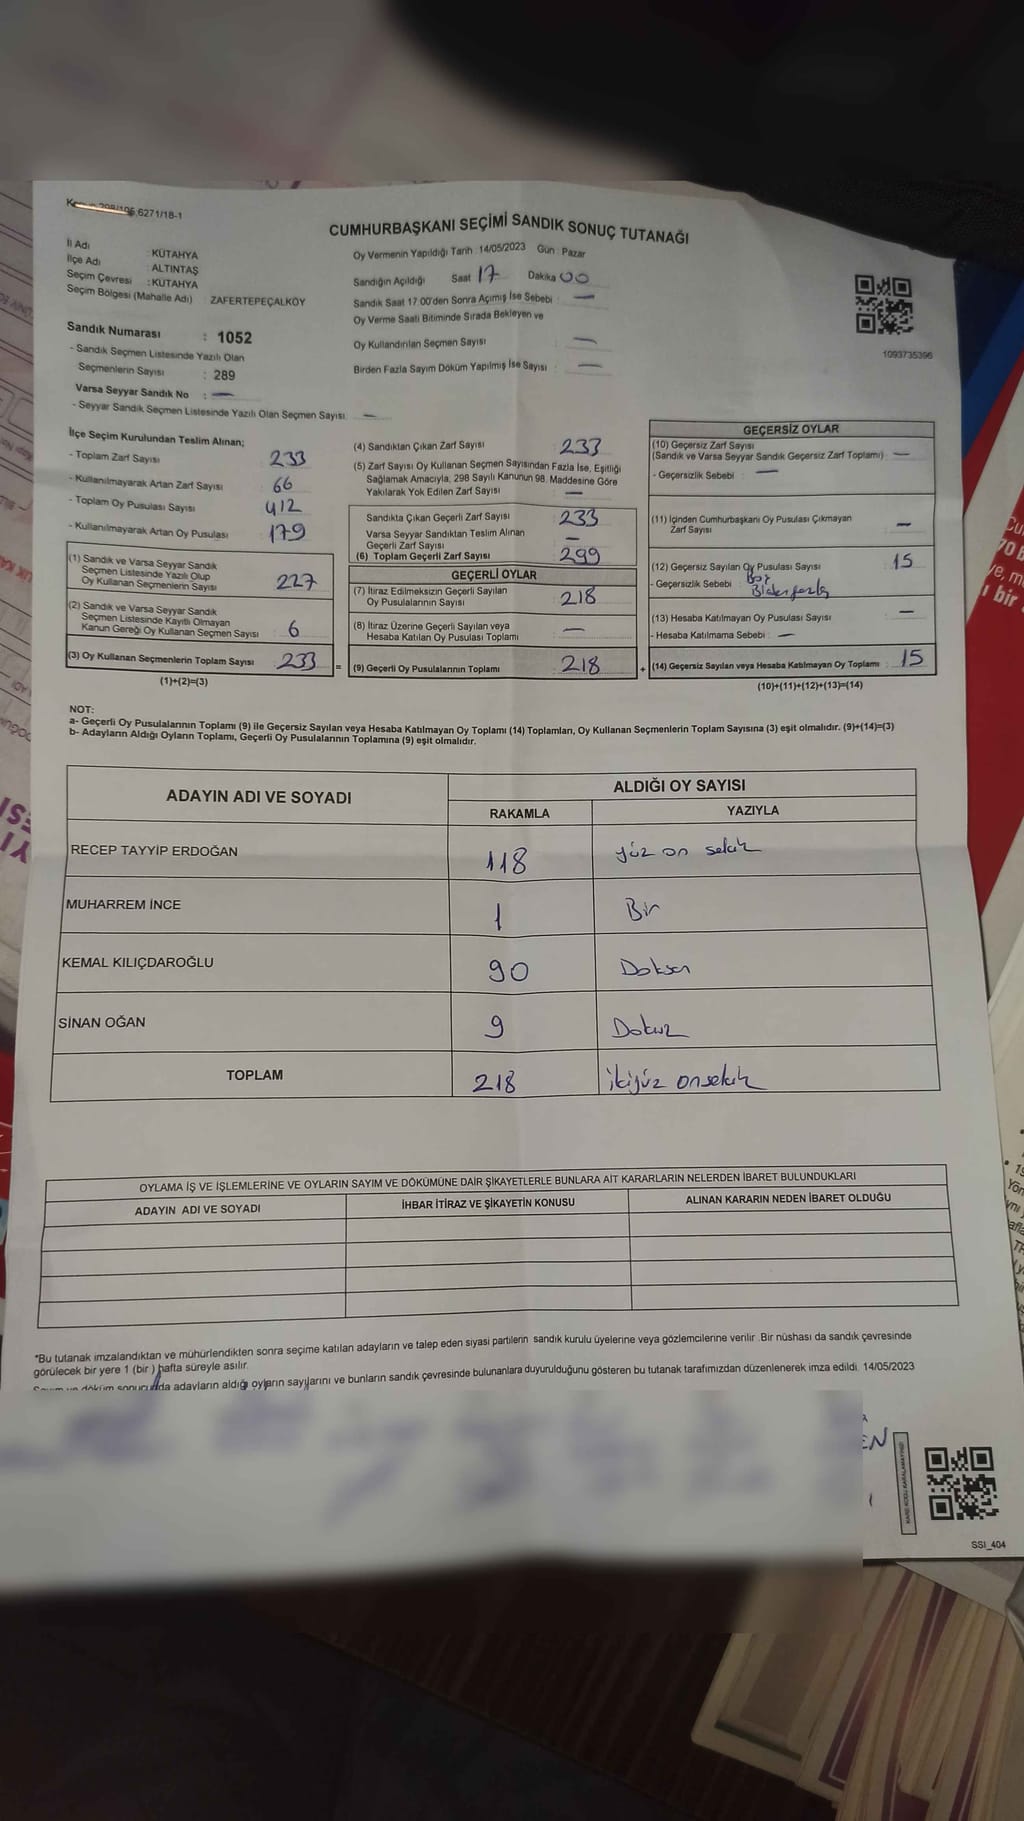 6271/18-1
CUMHURBAŞKANI SEÇİMİ SANDIK SONUÇ TUTANAĞI
İl Adı : KÜTAHYA
İlçe Adı : ALTINTAŞ
Seçim Çevresi : KÜTAHYA
Seçim Bölgesi (Mahalle Adı) : ZAFERTEPEÇALKÖY
Sandık Numarası : 1052
- Sandık Seçmen Listesinde Yazılı Olan
Seçmenlerin Sayısı : 289
Varsa Seyyar Sandık No : —
- Seyyar Sandık Seçmen Listesinde Yazılı Olan Seçmen Sayısı: —
Oy Vermenin Yapıldığı Tarih : 14/05/2023 Gün : Pazar
Sandığın Açıldığı Saat 17 Dakika 00
Sandık Saat 17.00'den Sonra Açımış İse Sebebi : —
Oy Verme Saati Bitiminde Sırada Bekleyen ve
Oy Kullandırılan Seçmen Sayısı : —
Birden Fazla Sayım Döküm Yapılmış İse Sayısı : —
1093735396
İlçe Seçim Kurulundan Teslim Alınan;
- Toplam Zarf Sayısı 233
- Kullanılmayarak Artan Zarf Sayısı : 66
- Toplam Oy Pusulası Sayısı : 412
- Kullanılmayarak Artan Oy Pusulası : 179
(1) Sandık ve Varsa Seyyar Sandık
Seçmen Listesinde Yazılı Olup
Oy Kullanan Seçmenlerin Sayısı : 227
(2) Sandık ve Varsa Seyyar Sandık
Seçmen Listesinde Kayıtlı Olmayan
Kanun Gereği Oy Kullanan Seçmen Sayısı : 6
(3) Oy Kullanan Seçmenlerin Toplam Sayısı : 233 =
(1)+(2)=(3)
(4) Sandıktan Çıkan Zarf Sayısı : 233
(5) Zarf Sayısı Oy Kullanan Seçmen Sayısından Fazla İse, Eşitliği
Sağlamak Amacıyla, 298 Sayılı Kanunun 98. Maddesine Göre
Yakılarak Yok Edilen Zarf Sayısı : —
Sandıkta Çıkan Geçerli Zarf Sayısı : 233
Varsa Seyyar Sandıktan Teslim Alınan
Geçerli Zarf Sayısı : —
(6) Toplam Geçerli Zarf Sayısı : 299
GEÇERLİ OYLAR
(7) İtiraz Edilmeksizin Geçerli Sayılan
Oy Pusulalarının Sayısı : 218
(8) İtiraz Üzerine Geçerli Sayılan veya
Hesaba Katılan Oy Pusulası Toplamı : —
(9) Geçerli Oy Pusulalarının Toplamı : 218 +
GEÇERSİZ OYLAR
(10) Geçersiz Zarf Sayısı
(Sandık ve Varsa Seyyar Sandık Geçersiz Zarf Toplamı) : —
- Geçersizlik Sebebi : —
(11) İçinden Cumhurbaşkanı Oy Pusulası Çıkmayan
Zarf Sayısı : —
(12) Geçersiz Sayılan Oy Pusulası Sayısı : 15
- Geçersizlik Sebebi : Boş
Birden fazla
(13) Hesaba Katılmayan Oy Pusulası Sayısı : —
- Hesaba Katılmama Sebebi : —
(14) Geçersiz Sayılan veya Hesaba Katılmayan Oy Toplamı : 15
(10)+(11)+(12)+(13)=(14)
NOT:
a- Geçerli Oy Pusulalarının Toplamı (9) ile Geçersiz Sayılan veya Hesaba Katılmayan Oy Toplamı (14) Toplamları, Oy Kullanan Seçmenlerin Toplam Sayısına (3) eşit olmalıdır. (9)+(14)=(3)
b- Adayların Aldığı Oyların Toplamı, Geçerli Oy Pusulalarının Toplamına (9) eşit olmalıdır.
ADAYIN ADI VE SOYADI ALDIĞI OY SAYISI
RAKAMLA YAZIYLA
RECEP TAYYİP ERDOĞAN 118 yüz on sekiz
MUHARREM İNCE 1 Bir
KEMAL KILIÇDAROĞLU 90 Doksan
SİNAN OĞAN 9 Dokuz
TOPLAM 218 ikiyüz onsekiz
OYLAMA İŞ VE İŞLEMLERİNE VE OYLARIN SAYIM VE DÖKÜMÜNE DAİR ŞİKAYETLERLE BUNLARA AİT KARARLARIN NELERDEN İBARET BULUNDUKLARI
ADAYIN ADI VE SOYADI İHBAR İTİRAZ VE ŞİKAYETİN KONUSU ALINAN KARARIN NEDEN İBARET OLDUĞU
*Bu tutanak imzalandıktan ve mühürlendikten sonra seçime katılan adayların ve talep eden siyasi partilerin sandık kurulu üyelerine veya gözlemcilerine verilir .Bir nüshası da sandık çevresinde
görülecek bir yere 1 (bir ) hafta süreyle asılır.
Sayım ve döküm sonucunda adayların aldığı oyların sayılarını ve bunların sandık çevresinde bulunanlara duyurulduğunu gösteren bu tutanak tarafımızdan düzenlenerek imza edildi. 14/05/2023
SSI_404